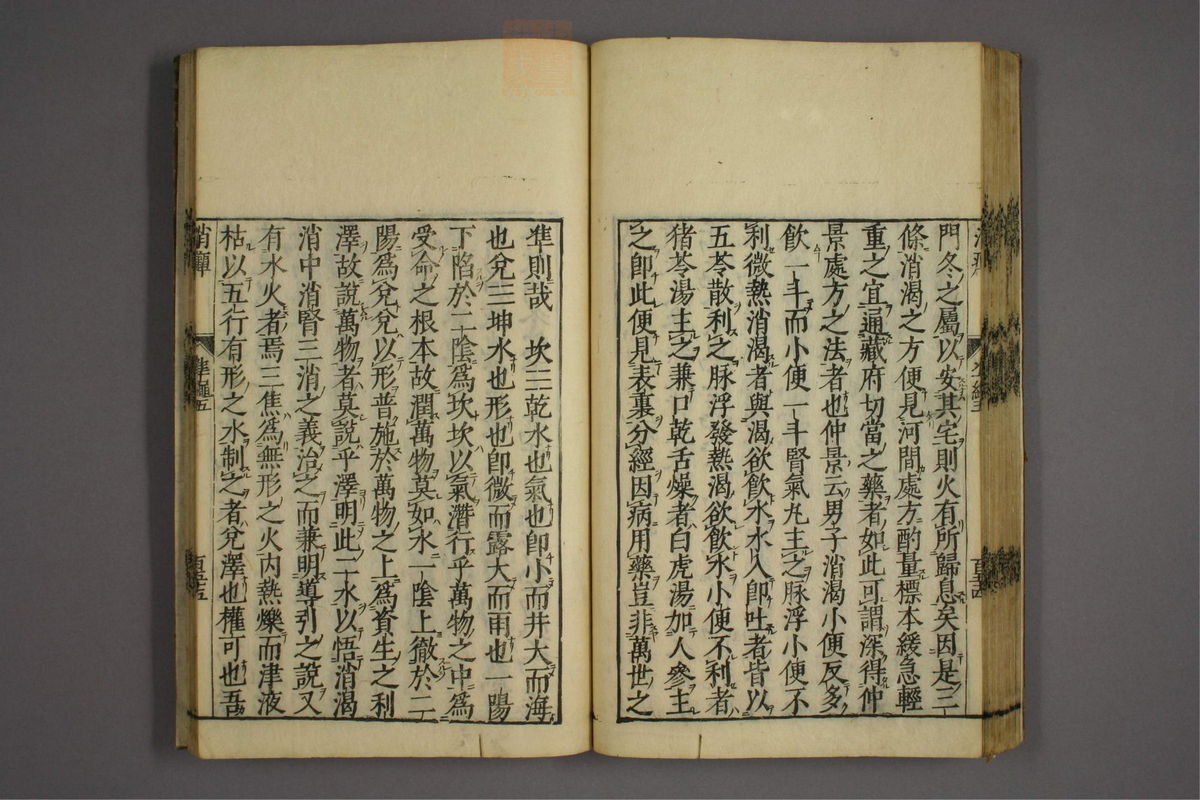 門冬之屬以安其宅則火有所歸息矣因是三
條消渴之方便見河間處方酌量標本緩急輕
重之宜通藏府切當之藥者如此可謂深得仲
景處方之法者也仲景云男子消渴小便反多
飲一斗而小便一斗腎氣丸主之脉浮小便不
利微熱消渴者與渴欲飲水水入即吐者皆以
五苓散利之脉浮發熱渴欲飲水小便不利者
猪苓湯主之兼口乾舌燥者白虎湯加人參主
之即此便見表裏分經因病用藥豈非萬世之
準則哉 坎三乾水也氣也即小而井大而海
也兌三坤水也形也即微而露大而雨也一陽
下陷於二陰爲坎坎以氣潛行乎萬物之中爲
受命之根本故潤萬物莫如水一陰上徹於二
陽爲兌兌以形普施於萬物之上爲資生之利
澤故說萬物者莫說乎澤明此二水以悟消渴
消中消腎三消之義治之而兼明導引之說又
有水火者焉三焦爲無形之火內熱爍而津液
枯以五行有形之水制之者兌澤也權可也吾
消癉 準繩五